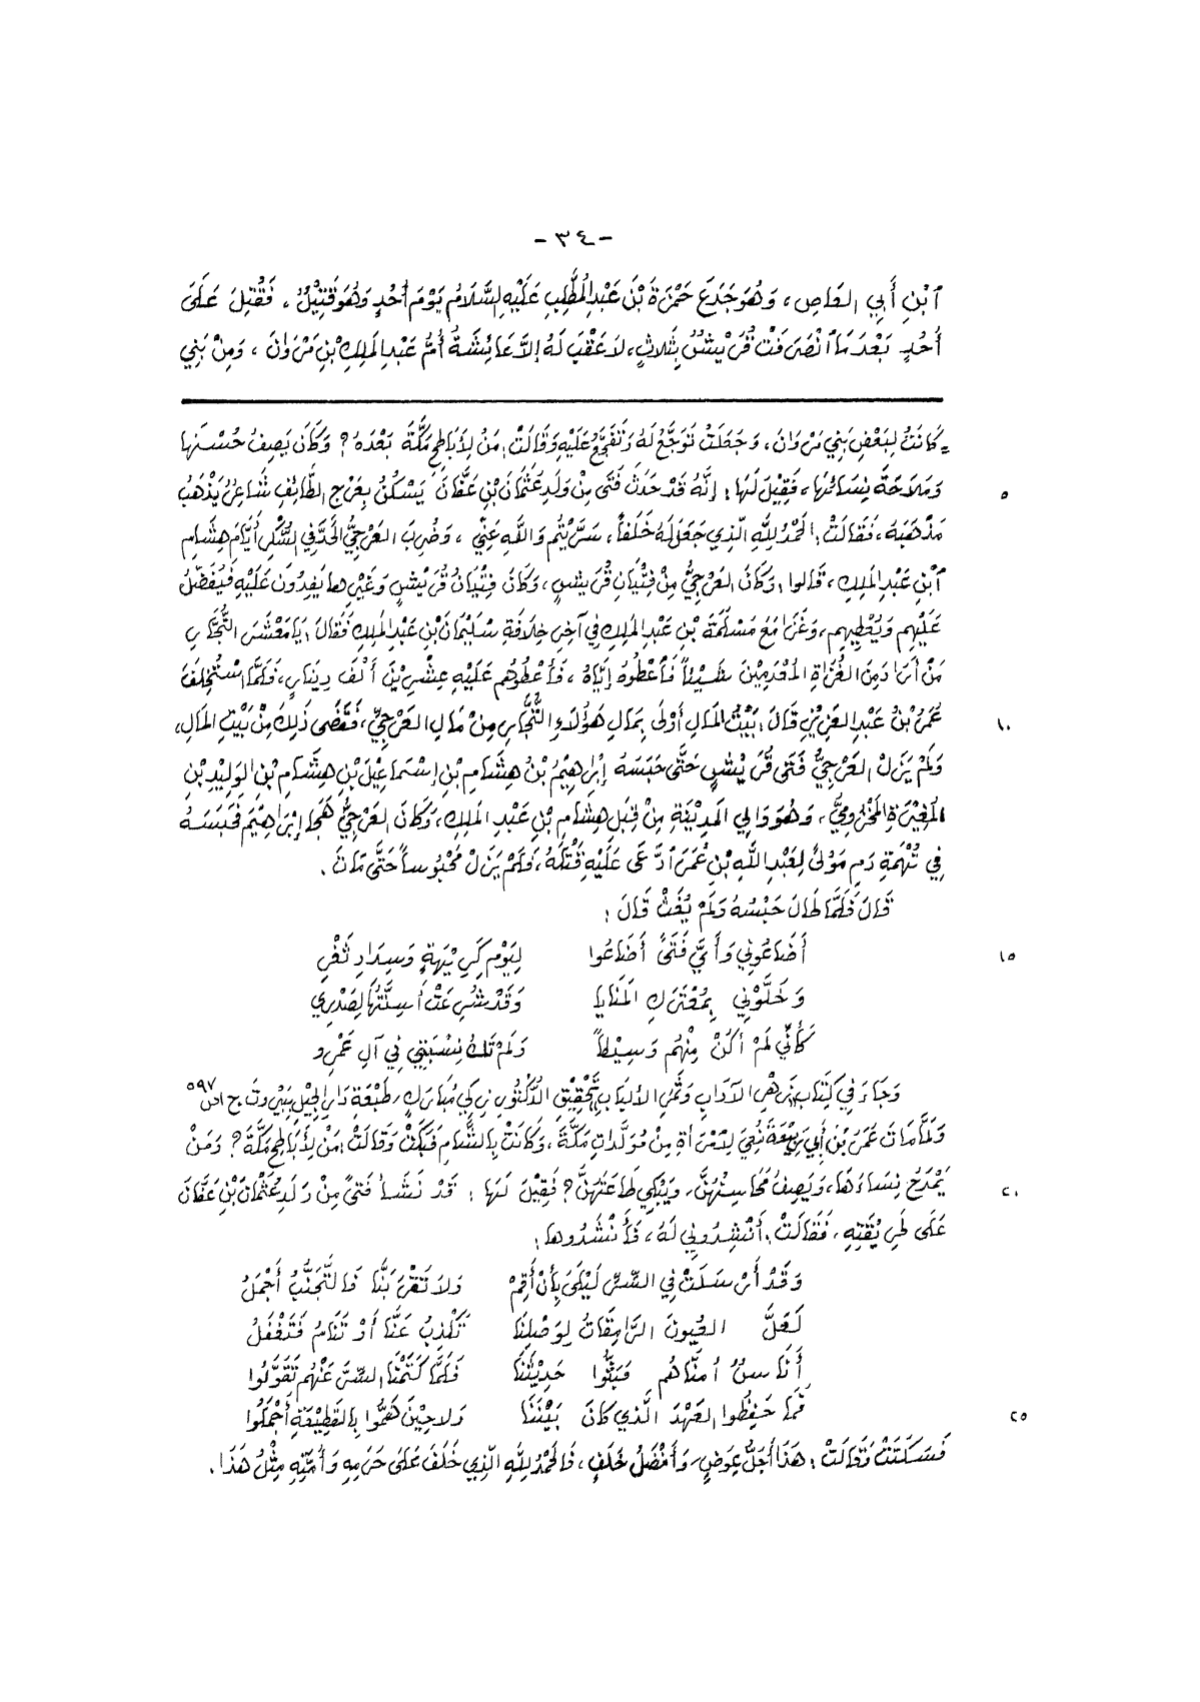 -٣٤-
ٱبْنِ أَبِي العَاصِ، وَهُوَ جَدَعَ حَمْزَةَ بْنَ عَبْدِ المُطَّلِبِ عَلَيْهِ السَّلَامُ يَوْمَ أُحُدٍ وَهُوَ قَتِيْلٌ، فَقُتِلَ عَلَى
أُحُدٍ بَعْدَمَا ٱنْصَرَفَتْ قُرَيْشٌ بِثَلاثٍ، لاَ عَقْبَ لَهُ إلاَّ عَائِشَةُ أُمُّ عَبْدِ المَلِكِ بْنِ مَرْوَانَ، وَمِنْ بَنِي
= كَانَتْ لِبَعْضِ بَنِي مَرْوَانَ، وَجَعَلَتْ تَوَجَّعُ لَهُ وَتَفَجَّعُ عَلَيْهِ وَقَالَتْ: مَنْ لِأَبَاطِحِ مَكَّةَ بَعْدَهُ؟ وَكَانَ يَصِفُ حُسْنَهَا
وَمَلاحَةَ نِسَائِهَا، فَقِيْلَ لَهَا: إنَّهُ قَدْ حَدَثَ فَتًى مِنْ وَلَدِ عُثْمَانَ بْنِ عَفَّانَ يَسْكُنُ بِعَرْجِ الطَّائِفِ شَاعِرٌ يَذْهَبُ ٥
مَذْهَبَهُ، فَقَالَتْ: الحَمْدُ لِلَّهِ الَّذِي جَعَلَ لَهُ خَلَفاً، سَرَّيْتُم وَاللَّهِ عَنِّي، وَضُرِبَ العَرْجِيُّ الحَدَّ فِي السُّكْرِ أَيَّامَ هِشَامِ
ٱبْنِ عَبْدِ المَلِكِ، قَالُوا: وَكَانَ العَرْجِيُّ مِنْ فِتْيَانِ قُرَيْشٍ، وَكَانَ فِتْيَانُ قُرَيْشٍ وَغَيْرِهَا يَفِدُونَ عَلَيْهِ فَيُفَضِّلُ
عَلَيْهِم وَيُعْطِيهِم، وَغَزَا مَعَ مَسْلَمَةَ بْنِ عَبْدِ المَلِكِ فِي آخِرِ خِلافَةِ سُلَيْمَانَ بْنِ عَبْدِ المَلِكِ فَقَالَ: يَا مَعْشَرَ التُّجَّارِ
مَنْ أَرَادَ مِنَ الغُزَاةِ المُعْدَمِيْنَ شَيْئاً فَأَعْطُوهُ إيَّاهُ، فَأَعْطَوْهُم عَلَيْهِ عِشْرِيْنَ أَلْفَ دِيْنَارٍ، فَلَمَّا اسْتُخْلِفَ
عُمَرُ بْنُ عَبْدِ العَزِيْزِ قَالَ: بَيْتُ المَالِ أَوْلَى بِمَالِ هَؤُلاَءِ التُّجَّارِ مِنْ مَالِ العَرْجِيِّ، فَقَضَى ذَلِكَ مِنْ بَيْتِ المَالِ، ١٠
وَلَمْ يَزَلْ العَرْجِيُّ فَتَى قُرَيْشٍ حَتَّى حَبَسَهُ إبْرَاهِيْمُ بْنُ هِشَامِ بْنِ إسْمَاعِيْلَ بْنِ هِشَامِ بْنِ الوَلِيْدِ بْنِ
المُغِيْرَةِ المَخْزُومِيُّ، وَهُوَ وَالِي المَدِيْنَةِ مِنْ قِبَلِ هِشَامِ بْنِ عَبْدِ المَلِكِ، وَكَانَ العَرْجِيُّ هَجَا إبْرَاهِيْمَ فَحَبَسَهُ
فِي تُهْمَةِ دَمِ مَوْلًى لِعَبْدِ اللَّهِ بْنِ عُمَرَ ٱدَّعَى عَلَيْهِ قَتْلَهُ، فَلَمْ يَزَلْ مَحْبُوساً حَتَّى مَاتَ.
قَالَ فَلَمَّا طَالَ حَبْسُهُ وَلَمْ يُغَثْ قَالَ:
أَضَاعُونِي وَأَيَّ فَتًى أَضَاعُوا لِيَوْمِ كَرِيْهَةٍ وَسِدَادِ ثَغْرِ ١٥
وَخَلَّوْنِي بِمُعْتَرَكِ المَنَايَا وَقَدْ شُرِعَتْ أَسِنَّتُهَا لِصَدْرِي
كَأَنِّي لَمْ أَكُنْ مِنْهُم وَسِيْطاً وَلَمْ تَكُ نِسْبَتِي فِي آلِ عَمْرِو
وَجَاءَ فِي كِتَابِ زَهْرِ الآدَابِ وَثَمَرِ الأَلْبَابِ تَحْقِيْقِ الدُّكْتُورِ زَكِي مُبَارَك، طَبْعَةِ دَارِ الجِيْلِ بِبَيْرُوتَ ج ١ ص ٥٩٧
وَلَمَّا مَاتَ عُمَرُ بْنُ أَبِي رَبِيْعَةَ نُعِيَ لِامْرَأَةٍ مِنْ مُوَلَّدَاتِ مَكَّةَ، وَكَانَتْ بِالشَّامِ فَبَكَتْ وَقَالَتْ: مَنْ لِأَبَاطِحِ مَكَّةَ؟ وَمَنْ
يَمْدَحُ نِسَاءَهَا، وَيَصِفُ مَحَاسِنَهُنَّ، وَيَبْكِي طَاعَتَهُنَّ؟ فَقِيْلَ لَهَا: قَدْ نَشَأَ فَتًى مِنْ وَلَدِ عُثْمَانَ بْنِ عَفَّانَ ٢٠
عَلَى طَرِيْقَتِهِ، فَقَالَتْ: أَنْشِدُونِي لَهُ، فَأَنْشَدُوهَا:
وَقَدْ أَرْسَلَتْ فِي السِّرِّ لَيْلَى بِأَنْ أَقِمْ وَلاَ تَقْرَبَنَّا فَالتَّجَنُّبُ أَجْمَلُ
لَعَلَّ العُيُونَ الرَّامِقَاتُ لِوَصْلِنَا تُكَذِّبُ عَنَّا أَوْ تَنَامُ فَتَغْفَلُ
أُنَاسٌ أَمِنَّاهُم فَبَثُّوا حَدِيْثَنَا فَلَمَّا كَتَمْنَا السِّرَّ عَنْهُم تَقَوَّلُوا
فَمَا حَفِظُوا العَهْدَ الَّذِي كَانَ بَيْنَنَا وَلاَ حِيْنَ هَمُّوا بِالقَطِيْعَةِ أَجْمَلُوا ٢٥
فَتَسَلَّتْ وَقَالَتْ: هَذَا أَجَلُّ عِوَضٍ، وَأَفْضَلُ خَلَفٍ، فَالحَمْدُ لِلَّهِ الَّذِي خَلَفَ عَلَى حَرَمِهِ وَأُمَّتِهِ مِثْلُ هَذَا.